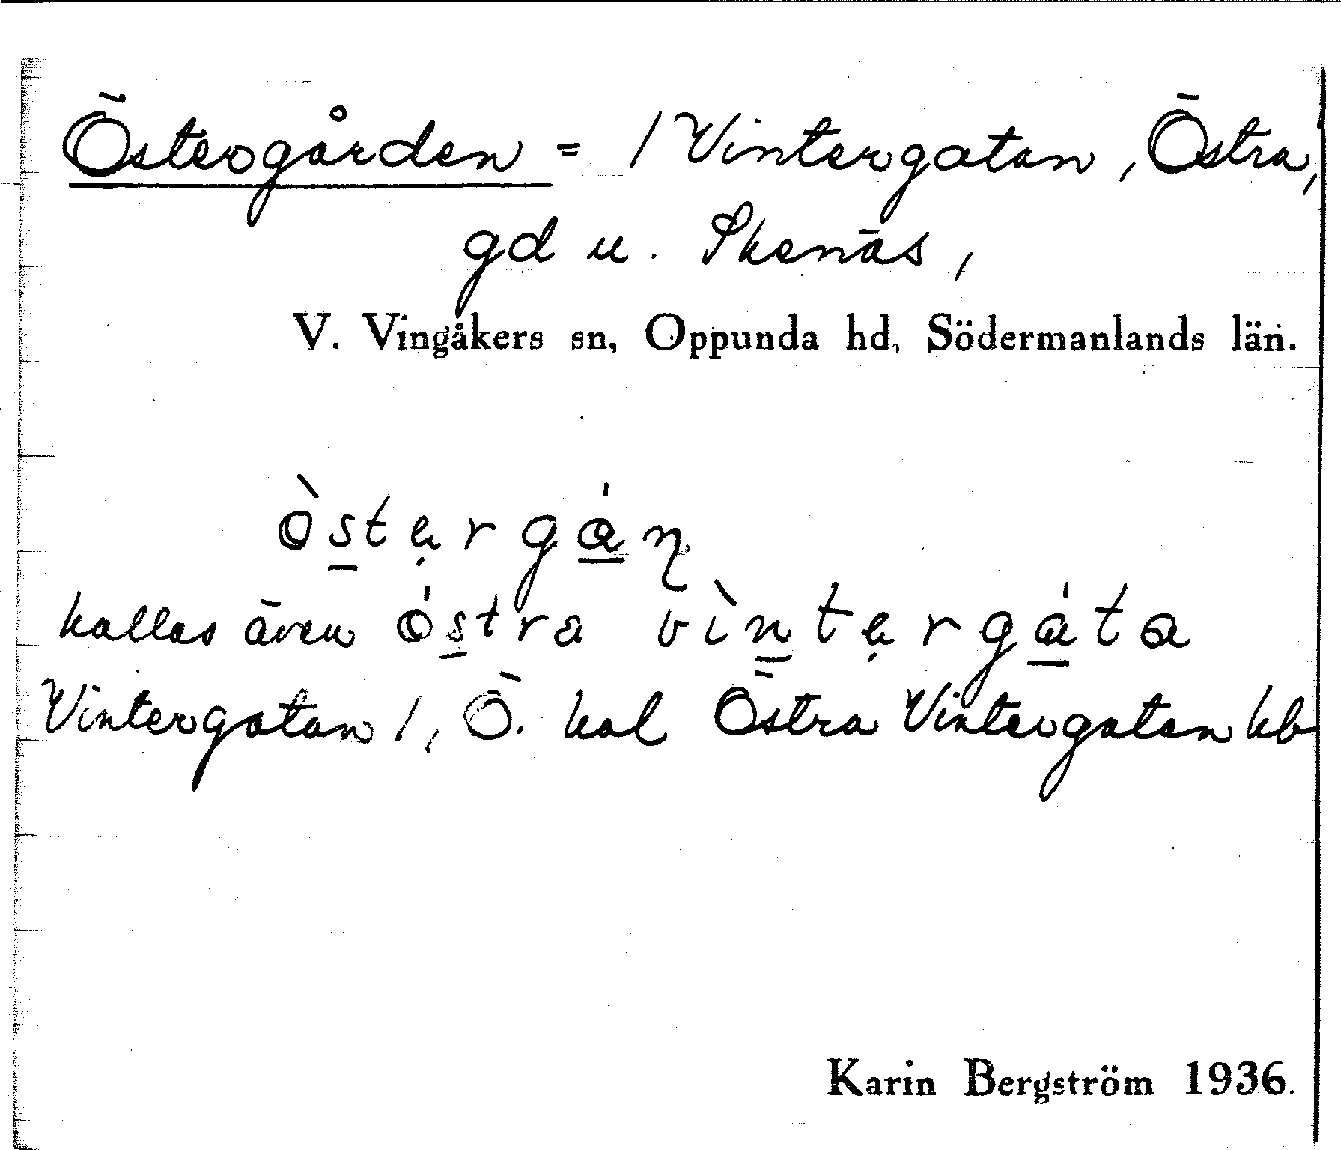 Östergården = / Vintergatan, Östra,
gd u. Skenäs,
V. Vingåkers sn, Oppunda hd, Södermanlands län.
òstẹrgán̥
kallas även óstra vìntẹrgáta
Vintergatan /, Ö. kal Östra Vintergatan kb
Karin Bergström 1936.